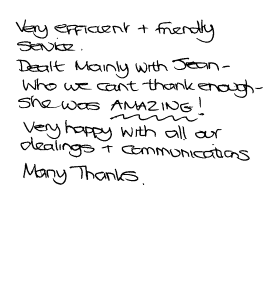 Very efficient + friendly
service.
Dealt Mainly with Jean -
Who we cant thank enough -
She was AMAZING!
Very happy with all our
dealings + communications
Many Thanks.